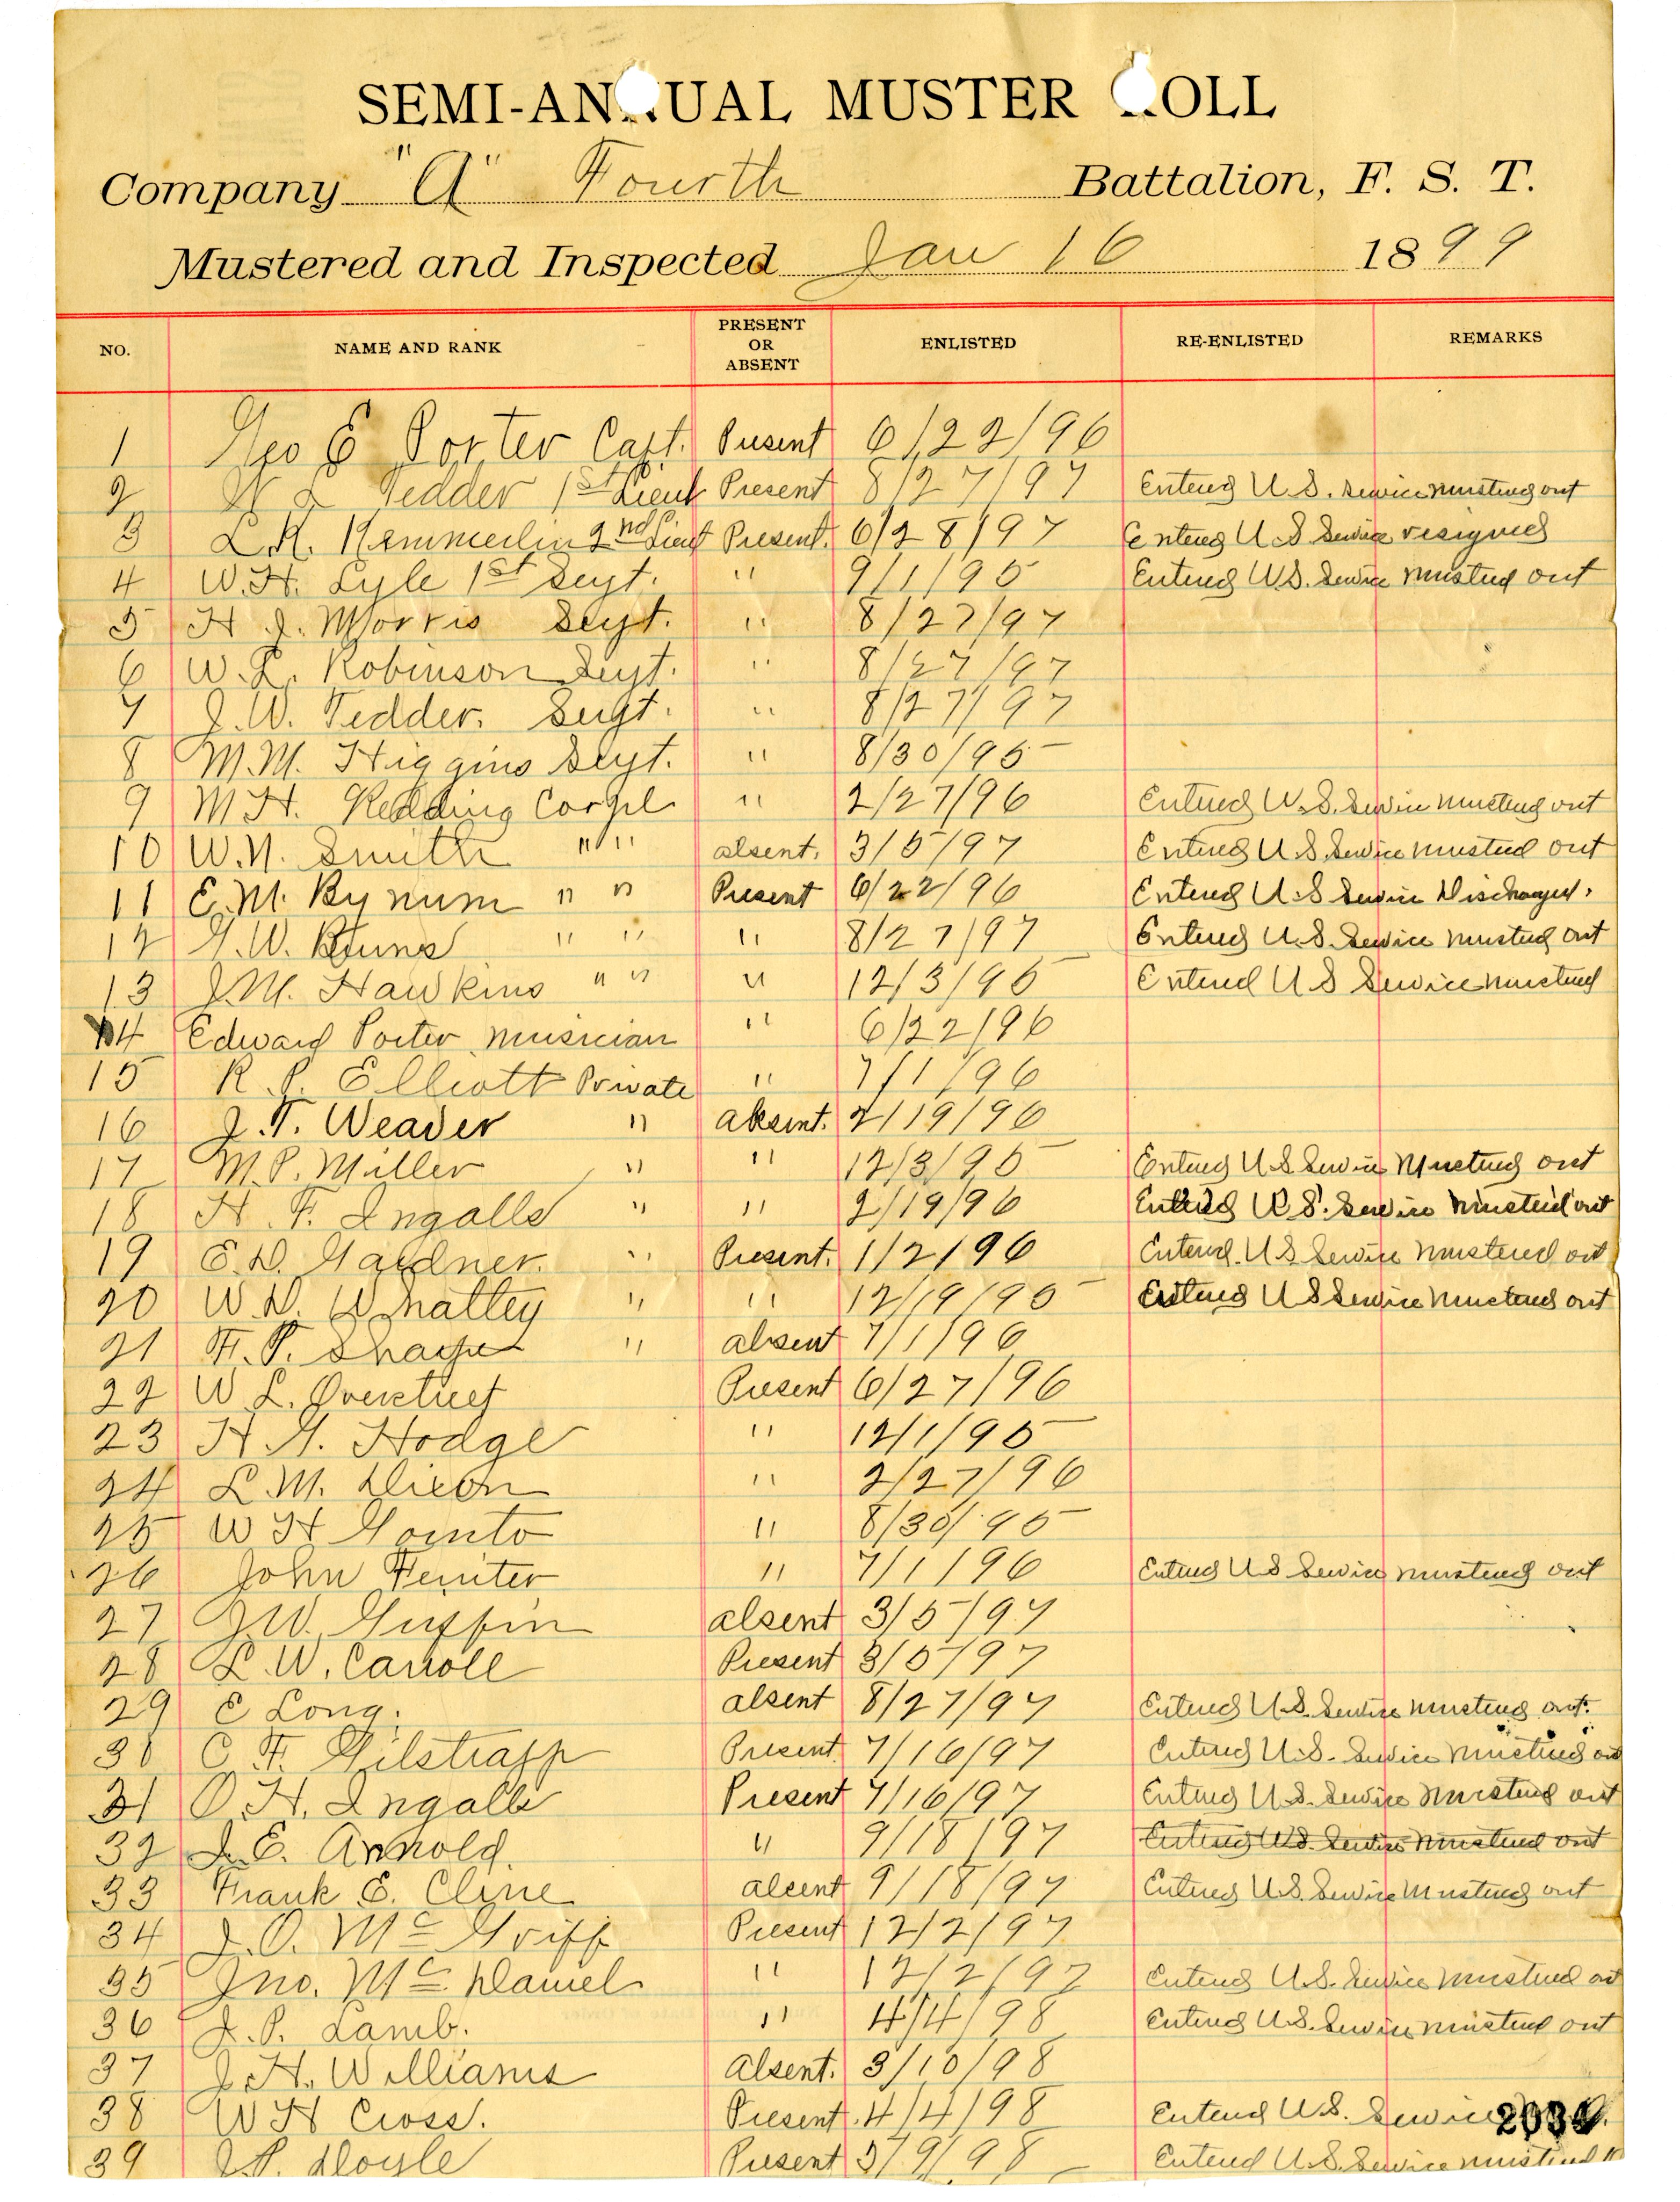 SEMI-ANNUAL MUSTER ROLL
Company "A" Fourth Battalion, F. S. T.
Mustered and Inspected Jan 16 1899
NO. NAME AND RANK PRESENT OR ABSENT ENLISTED RE-ENLISTED REMARKS
1 Geo E Porter Capt. Present 6/22/96
2 Tedder 1st Lieut Present 8/27/97 Entered U.S. Service mustered out
3 L.R. 2nd Lieut Present. 6/28/97 Entered U.S Service resigned
4 W.H. Lyle 1st Sergt. " 9/1/95 Entered U.S. Service mustered out
5 H J. Morris Sergt. " 8/27/97
6 W.L. Robinson Sergt. " 8/27/97
7 J.W. Tedder. Sergt. " 8/27/97
8 M.M. Higgins Sergt. " 8/30/95
9 M.H. Redding Corpl " 2/27/96 Entered U.S. Service mustered out
10 W.N. Smith " " absent. 3/5/97 Entered U.S. Service mustered out
11 E.M. Bynum " " Present 6/22/96 Entered U.S Service Discharged.
12 G.W. Bruns " " " 8/27/97 Entered U.S. Service mustered out
13 J.M. Hawkins " " " 12/3/95 Entered U S Service mustered
14 Edward Porter musician " 6/22/96
15 R. P. Elliott Private " 7/1/96
16 J.T. Weaver " absent. 2/19/96
17 M.P. Miller " " 12/3/95 Entered U.S Service Mustered out
18 H. F. Ingalls " " 2/19/96 Entered U.S. Service mustered out
19 E.D. Gardner. " Present. 1/2/96 Entered. U.S Service mustered out
20 W.D. Whatley " " 12/19/95 Entered U S Service mustered out
21 F.P. Sharpe " absent 7/1/96
22 W L. Overstreet Present 6/27/96
23 H G. Hodge " 12/1/95
24 L.M. Dixon " 2/27/96
25 W H Gornto " 8/30/95
26 John Feinter " 7/1/96 Entered U S Service mustered out
27 J.W. Griffin absent 3/5/97
28 L.W. Carroll Present 3/5/97
29 E Long. absent 8/27/97 Entered U.S. Service mustered out.
30 C. F. Gilstrapp Present. 7/16/97 Entered U.S. Service mustered out
31 O.H. Ingalls Present 7/16/97 Entered U.S. Service mustered out
32 J.E. Arnold. " 9/18/97 Entered U.S. Service mustered out
33 Frank E. Cline absent 9/18/97 Entered U.S. Service Mustered out
34 J.O. McGriff Present 12/2/97
35 Jno. McDaniel " 12/2/97 Entered U.S. Service mustered out
36 J.P. Lamb. " 4/4/98 Entered U.S. Service mustered out
37 J.H. Williams Absent. 3/10/98
38 W H Cross. Present. 4/4/98 Entered U.S. Service
39 J.P. Doyle Present 3/9/98 Entered U.S. Service mustered